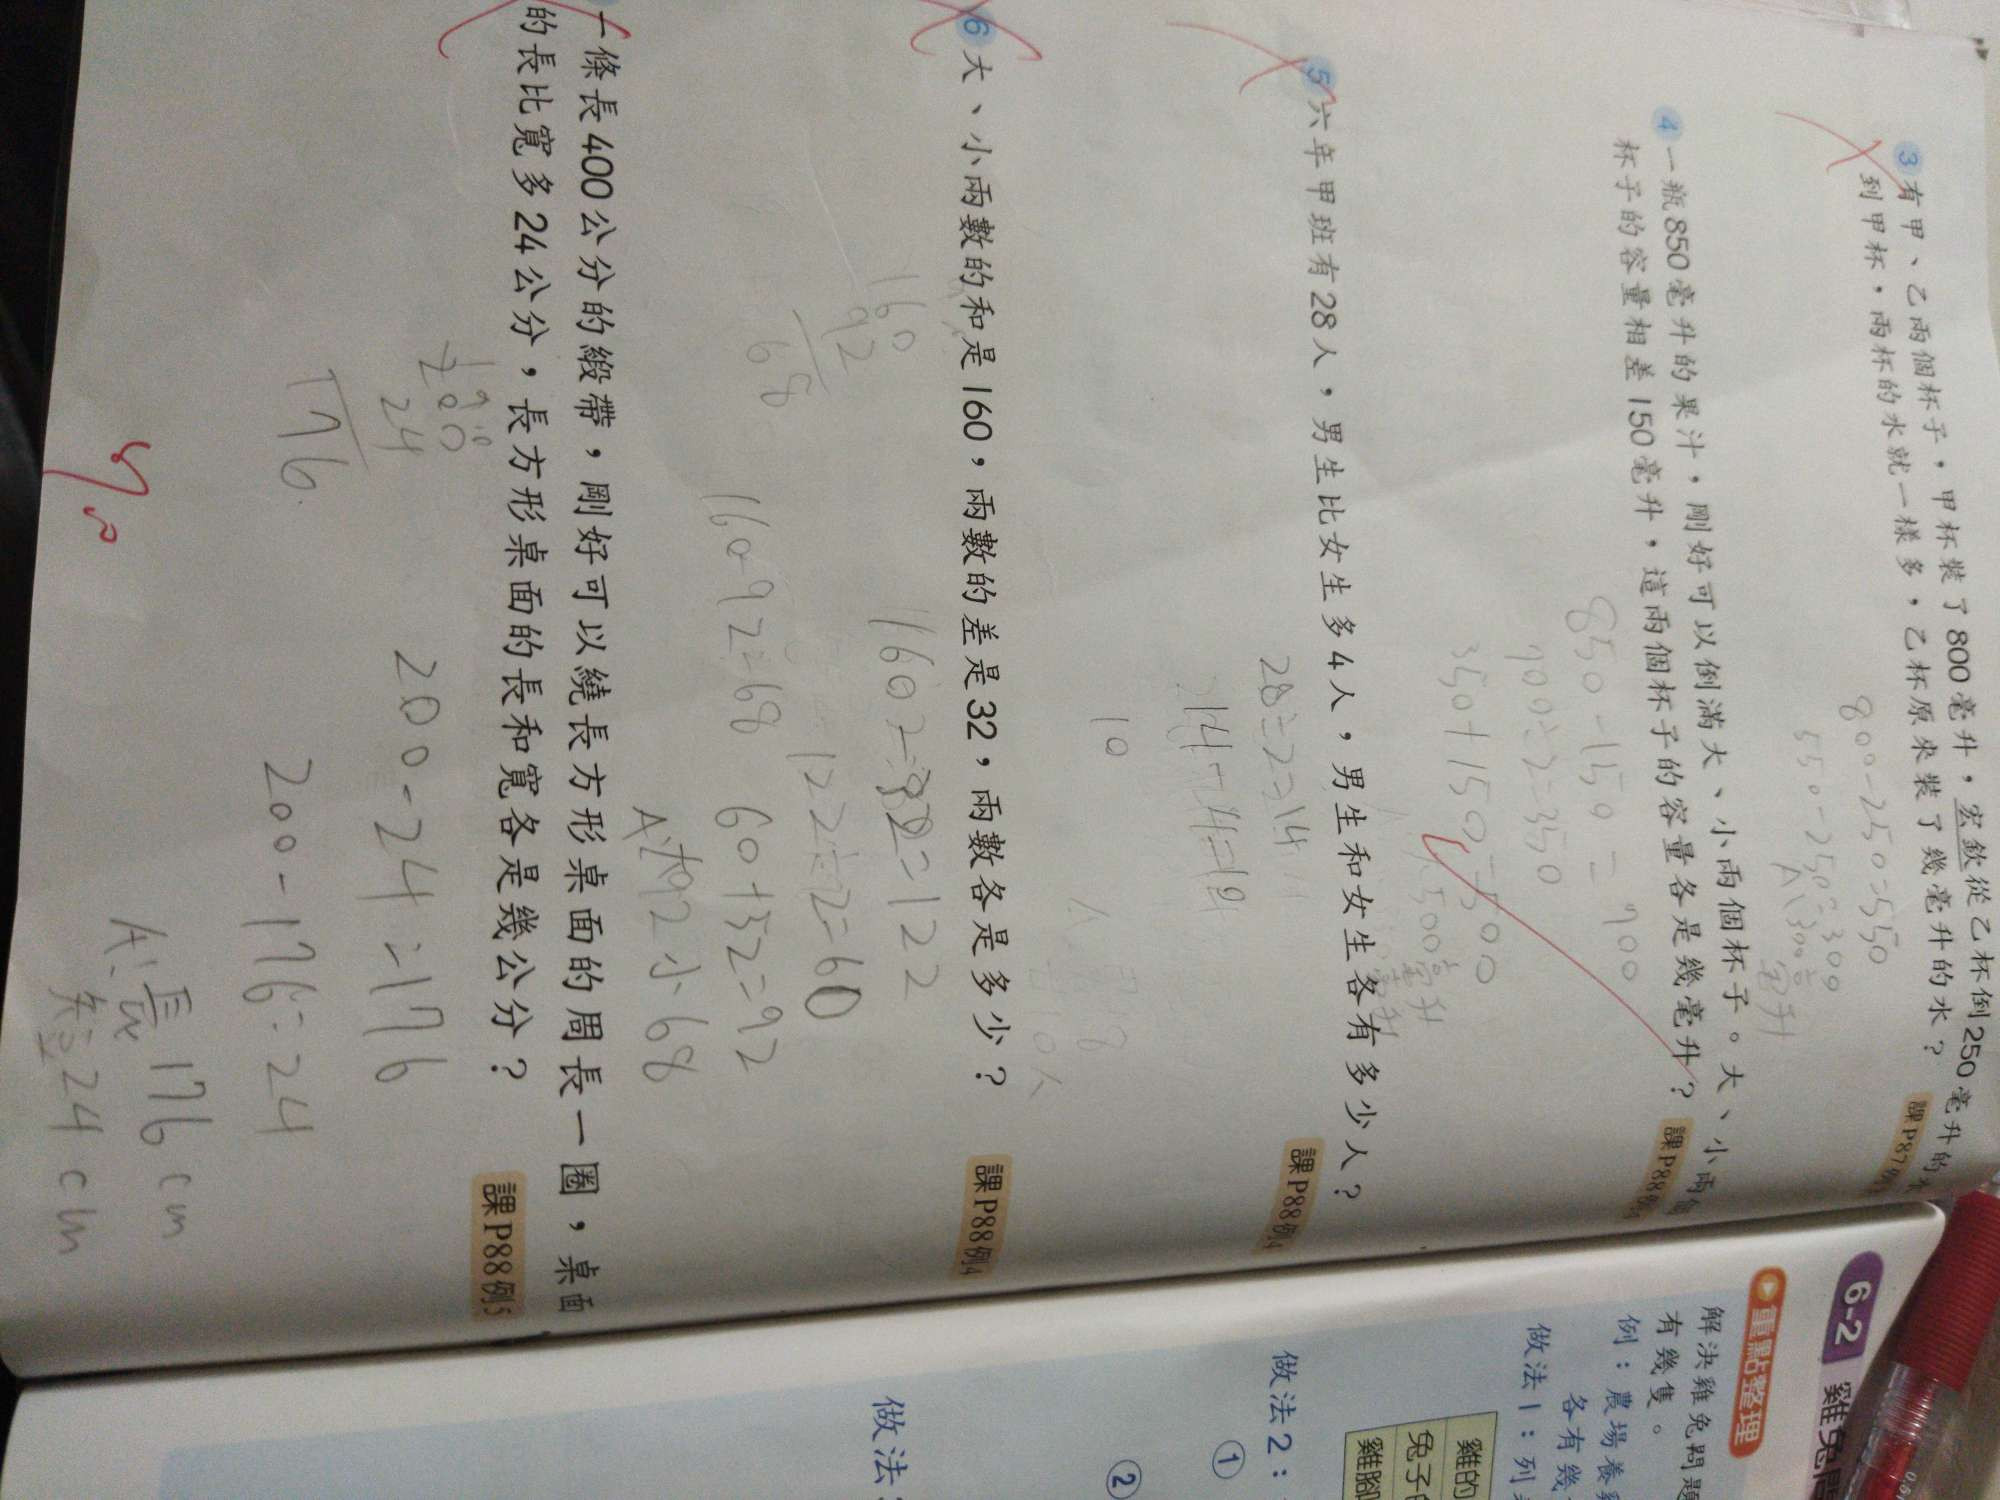 ③ 有甲、乙兩個杯子，甲杯裝了800毫升，宏欽從乙杯倒250毫升的水
到甲杯，兩杯的水就一樣多，乙杯原來裝了幾毫升的水？
課P87例
800-250=550
550-250=300
A:300毫升
④ 一瓶850毫升的果汁，剛好可以倒滿大、小兩個杯子。大、小兩個
杯子的容量相差150毫升，這兩個杯子的容量各是幾毫升？
課P88例
850-150=700
700÷2=350
350+150=500
500毫升
⑤ 六年甲班有28人，男生比女生多4人，男生和女生各有多少人？
課P88例4
28÷2=14
10
10人
⑥ 大、小兩數的和是160，兩數的差是32，兩數各是多少？
課P88例4
122÷2=60
60+32=92
160-92=68
160
92
68
A:大92小68
一條長400公分的緞帶，剛好可以繞長方形桌面的周長一圈，桌面
的長比寬多24公分，長方形桌面的長和寬各是幾公分？
課P88例5
200-24=176
200-176=24
200
24
176
A:長176cm
24cm
6-2 雞兔問
重點整理
解決雞兔問題
有幾隻。
例：農場養雞
各有幾
做法1：列
雞的
兔子的
雞腳
做法2：
①
②
做法